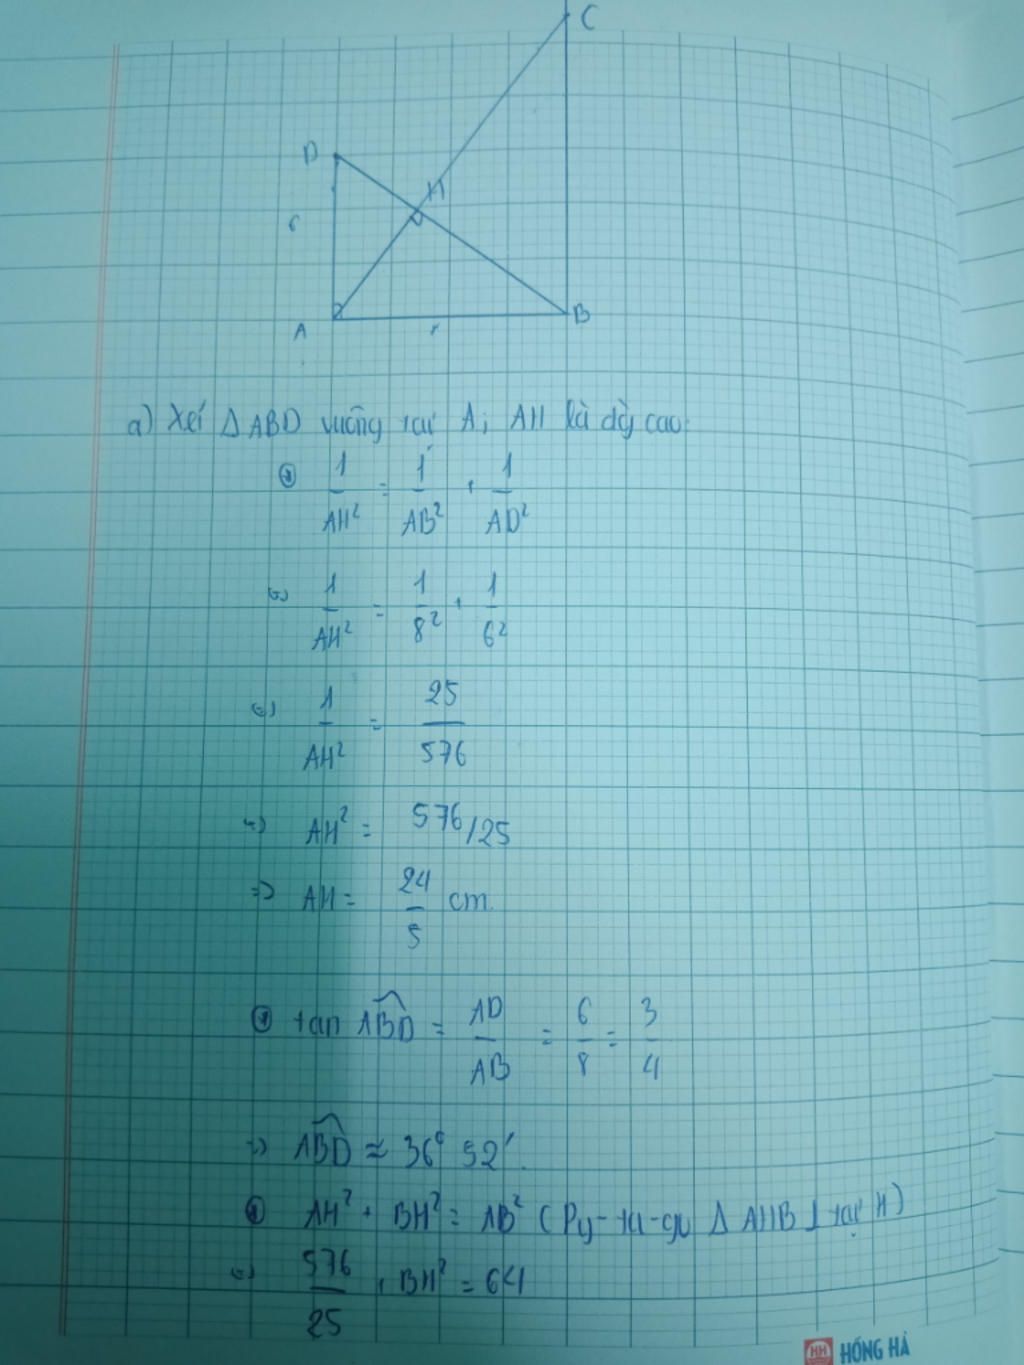 C
D
H
6
A
B
a) Xét Δ ABD vuông tại A; AH là đg cao
1/AH² = 1/AB² + 1/AD²
1/AH² = 1/8² + 1/6²
1/AH² = 25/576
AH² = 576/25
=> AH = 24/5 cm
tan ABD = AD/AB = 6/8 = 3/4
=> ABD ≈ 36° 52'
AH² + BH² = AB² (Py-ta-go Δ AHB ⊥ tại H)
576/25 + BH² = 64
HH HỒNG HÀ